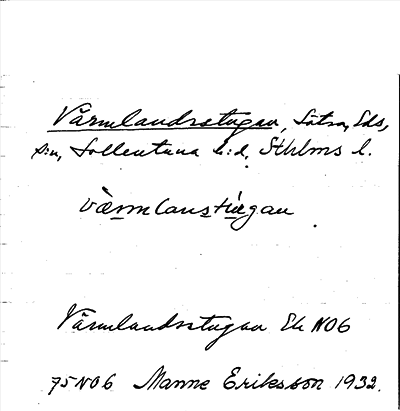 Värmlandsstugan, Sätra, Eds,
s:n, Sollentuna h:d, Sthlms l.
värmlanstugan
Värmlandsstugan Ek NO6
75NO6 Manne Eriksson 1932.